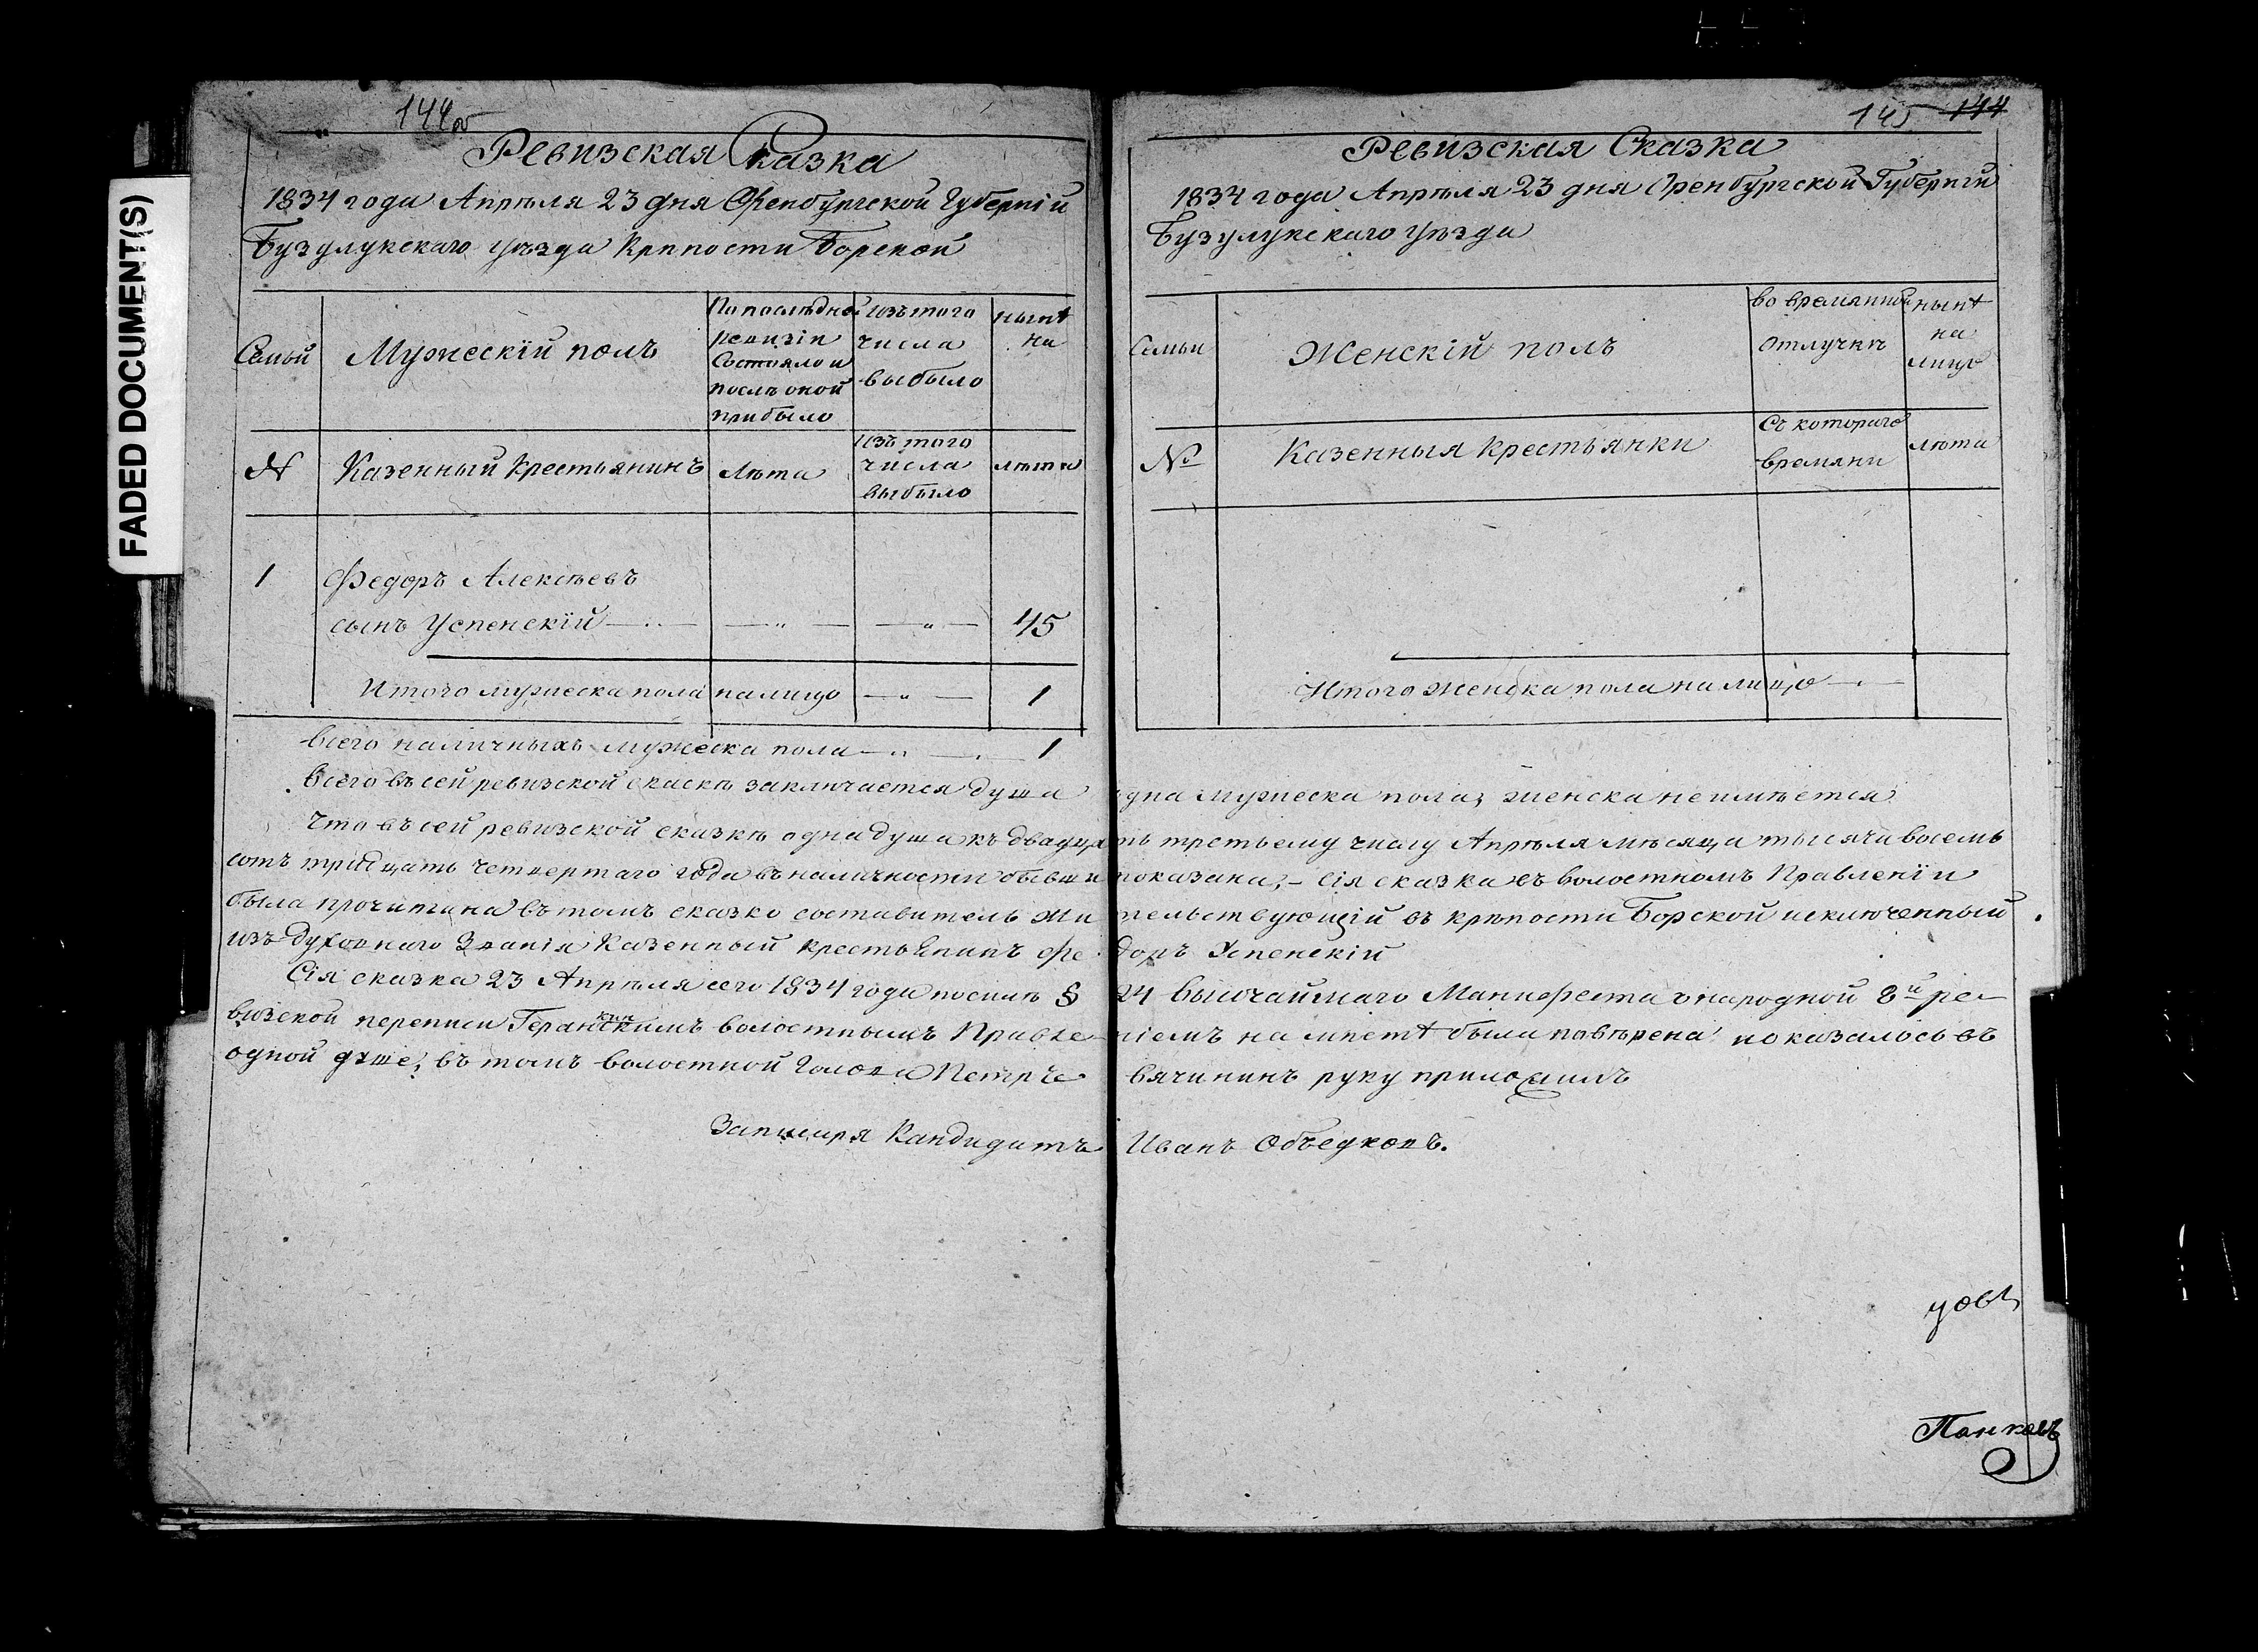 FADED DOCUMENT(S)
144об
Ревизская Сказка
1834 года Апрѣля 23 дня Оренбургской Губерніи
Бузулукскаго уѣзда Крѣпости Борской
Семьи
Мужескій полъ
По послѣдней
ревизіи
Состояло и
послѣ оной
прибыло
Изъ того
числа
выбыло
нынѣ
на
№
Казенный крестьянинъ
Лѣта
Изъ того
числа
выбыло
лѣта
1
Федоръ Алексѣевъ
сынъ Успенскій — „ — — „ — — „ — 45
Итого мужеска пола на лицо — „ — 1
Всего наличныхъ мужеска пола — „ — 1
145 144
Ревизская Сказка
1834 года Апрѣля 23 дня Оренбургской Губерніи
Бузулукскаго уѣзда
Семьи
Женскій полъ
во времянной
отлучкѣ
нынѣ
на
лицо
№
Казенныя крестьянки
Съ котораго
времяни
лѣта
Итого женска пола на лицо — „ —
Всего въ сей ревизской скаскѣ заключается душа одна мужеска пола, женска неимѣется
Что въ сей ревизской сказкѣ одна душа къ двадцать третьему числу Апрѣля мѣсяца тысяча восемь
сотъ тридцать четвертаго года въ наличности бывши показана, – Сія сказка въ волостномъ Правленіи
была прочитана въ томъ сказко составитель жительствующій въ крѣпости Борской исключенный
изъ духовнаго Званія Казенный крестьянинъ Федоръ Успенскій
Сія сказка 23 Апрѣля сего 1834 года по силѣ § 24 Высочайшаго Манифеста о народной 8й ре-
визской переписи волостнымъ Правленіемъ на мѣстѣ была повѣрена, и оказалось въ
одной душе, въ томъ волостной Голова Петръ Чевячининъ руку приложилъ
За писаря Кандидатъ Иванъ Объедковъ.
Панковъ